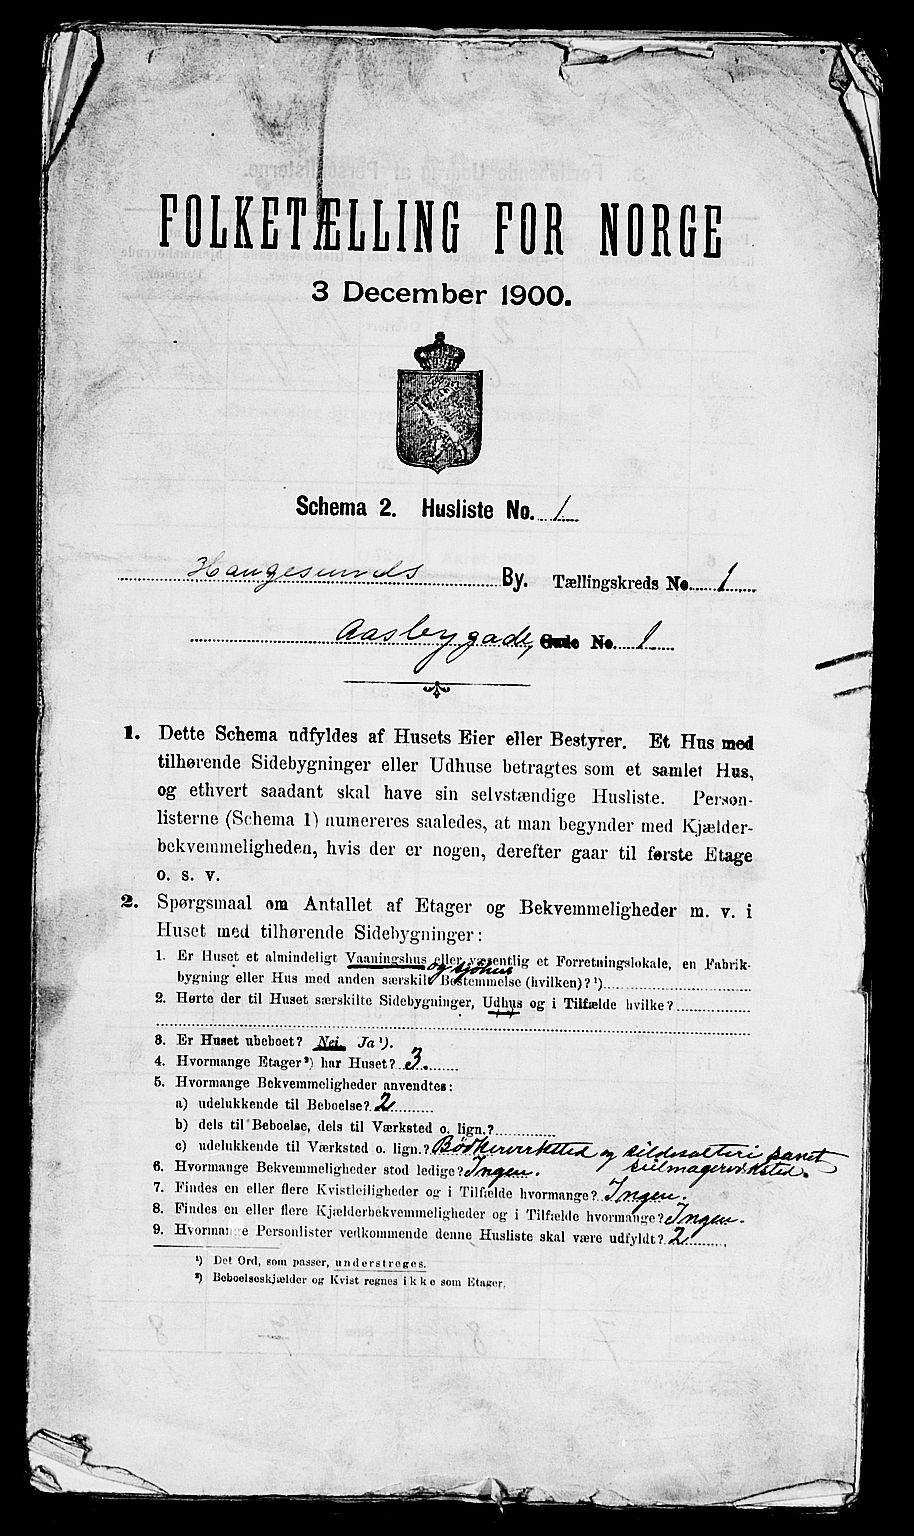 FOLKETÆLLING FOR NORGE
3 December 1900.
Schema 2. Husliste No. 1
Haugesunds By. Tællingskreds No. 1
Aasbygade, Gade No. 1
1. Dette Schema udfyldes af Husets Eier eller Bestyrer. Et Hus med
tilhørende Sidebygninger eller Udhuse betragtes som et samlet Hus,
og ethvert saadant skal have sin selvstændige Husliste. Person-
listerne (Schema 1) numereres saaledes, at man begynder med Kjælder-
bekvemmeligheden, hvis der er nogen, derefter gaar til første Etage
o. s. v.
2. Spørgsmaal om Antallet af Etager og Bekvemmeligheder m. v. i
Huset med tilhørende Sidebygninger:
1. Er Huset et almindeligt Vaaningshus eller væsentlig et Forretningslokale, en Fabrik-
og sjöhus
bygning eller Hus med anden særskilt Bestemmelse (hvilken)? ¹)
2. Hørte der til Huset særskilte Sidebygninger, Udhus og i Tilfælde hvilke?
3. Er Huset ubeboet? Nei. Ja ¹).
4. Hvormange Etager ²) har Huset? 3.
5. Hvormange Bekvemmeligheder anvendtes:
a) udelukkende til Beboelse? 2
b) dels til Beboelse, dels til Værksted o. lign.?
c) udelukkende til Værksted o. lign.? Bödkerverksted og sildesalteri samt
seilmagerverksted.
6. Hvormange Bekvemmeligheder stod ledige? Ingen.
7. Findes en eller flere Kvistleiligheder og i Tilfælde hvormange? Ingen.
8. Findes en eller flere Kjælderbekvemmeligheder og i Tilfælde hvormange? Ingen.
9. Hvormange Personlister vedkommende denne Husliste skal være udfyldt? 2
¹) Det Ord, som passer, understreges.
²) Beboelseskjælder og Kvist regnes ikke som Etager.